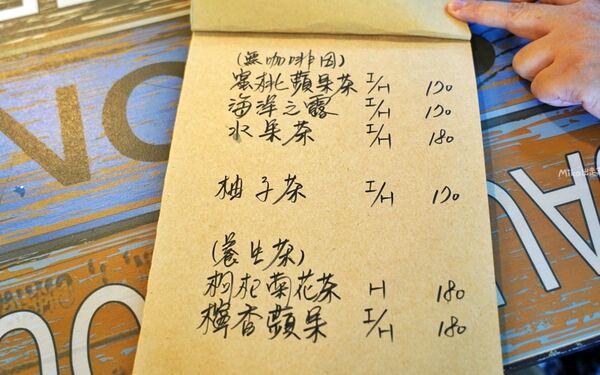 (無咖啡因)
蜜桃蘋果茶 I/H 170
海洋之露 I/H 170
水果茶 I/H 180
柚子茶 I/H 170
(養生茶)
枸杞菊花茶 H 180
檸香蘋果 I/H 180